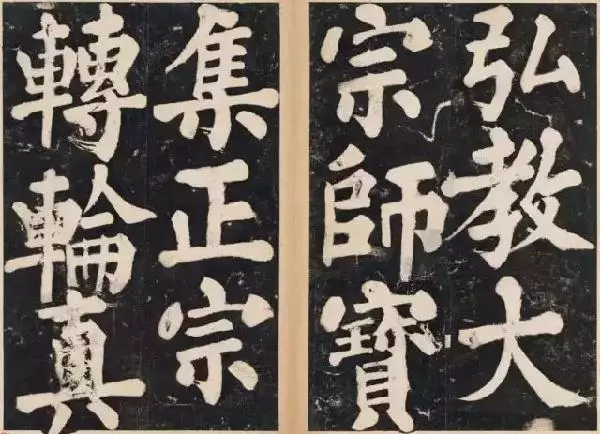 弘教大
宗師寶
集正宗
轉輪真